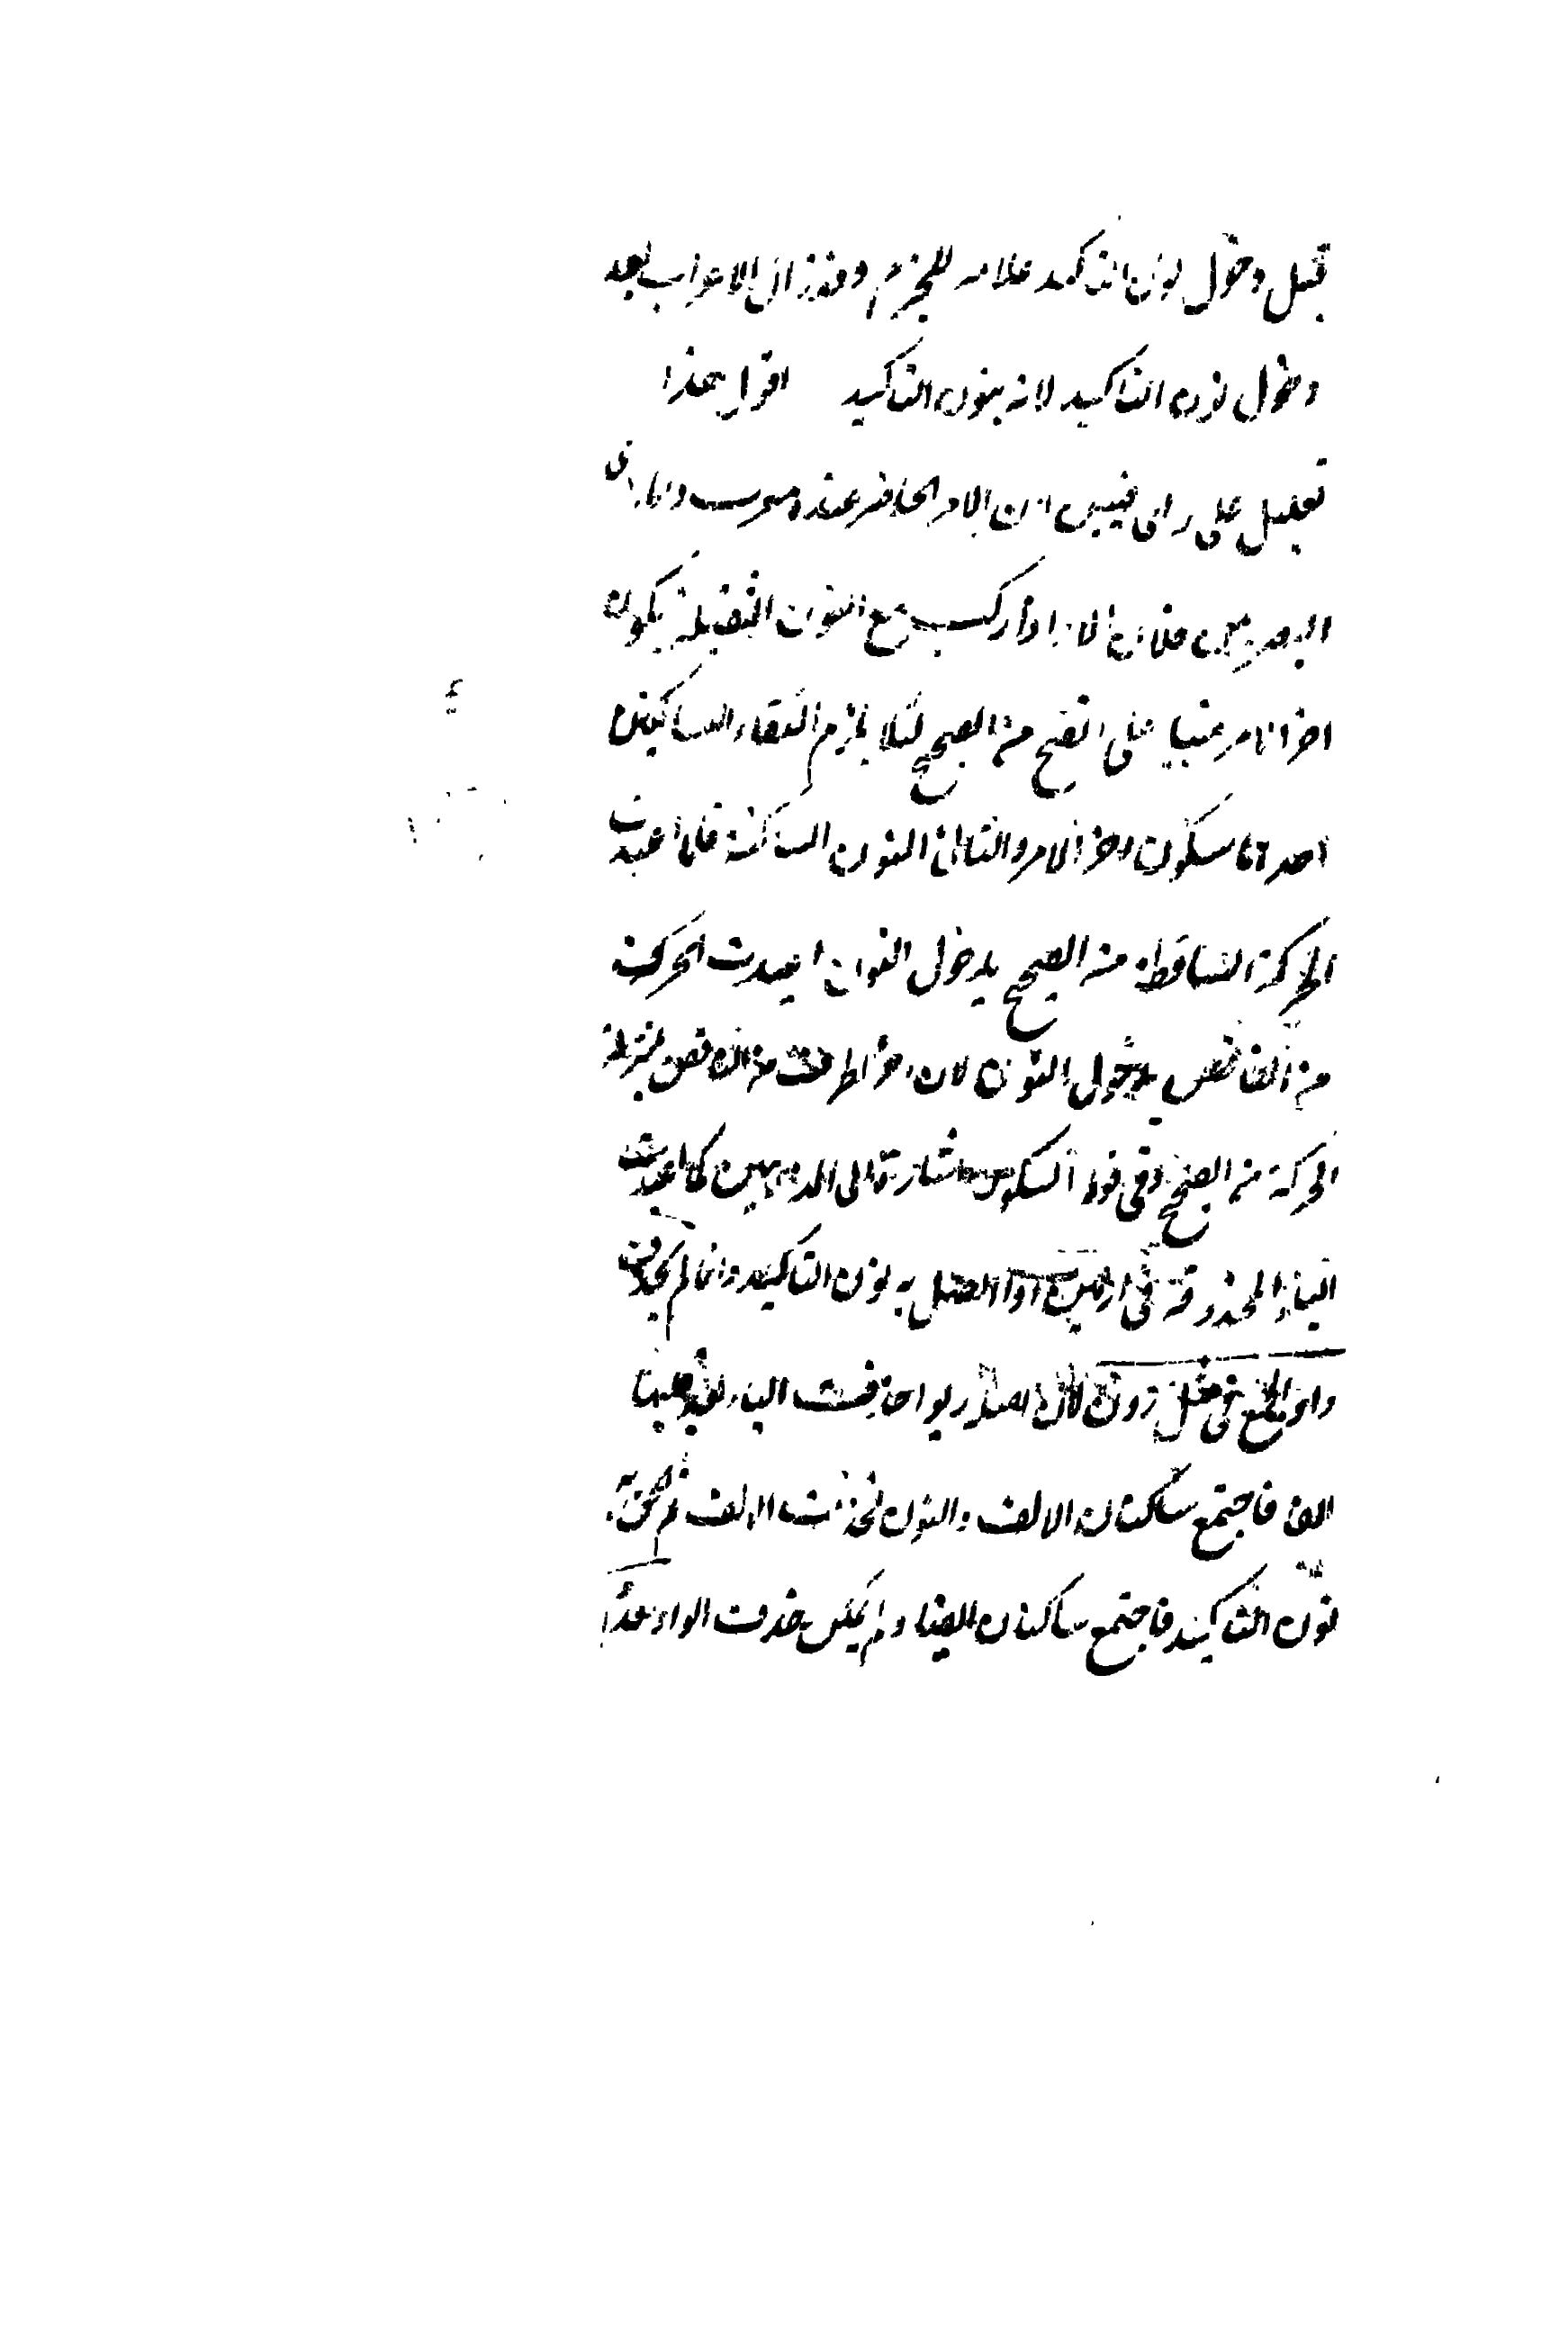 قبل دخول نون التاكيد علامه للجزم وقد زال الاعراب بعد
دخول نون التاكيد لانه بنون التاكيد اقول هذا
تعليل على راى من ان الامر الحاضر عنده معرب واما راى
البصريين فلان اذا ركب مع النون الثقيلة يكون
اخر الامر مبنيا على الفتح من الصحيح لئلا يلزم التقاء الساكنين
احدهما سكون اخر الامر والثانى النون الساكنة فلما اعيدت
الحركة الساقطة من الصحيح بدخول النون اعيدت الحركة
من الناقص بدخول النون لان حرف من الناقص بمنزلة
الحركة من الصحيح وفى قوله السكون اشارة الى المذهبين كما اعيدت
الياء المحذوفة فى ارمين اذا اتصل به نون التاكيد وانما لم يحذف
واو الجمع فى مثل لان اصله حذفت الياء
الفا فاجتمع ساكنان الالف والنون فحذفت الالف ثم
نون التاكيد فاجتمع ساكنان ايضا ولم يكن حذف الواو